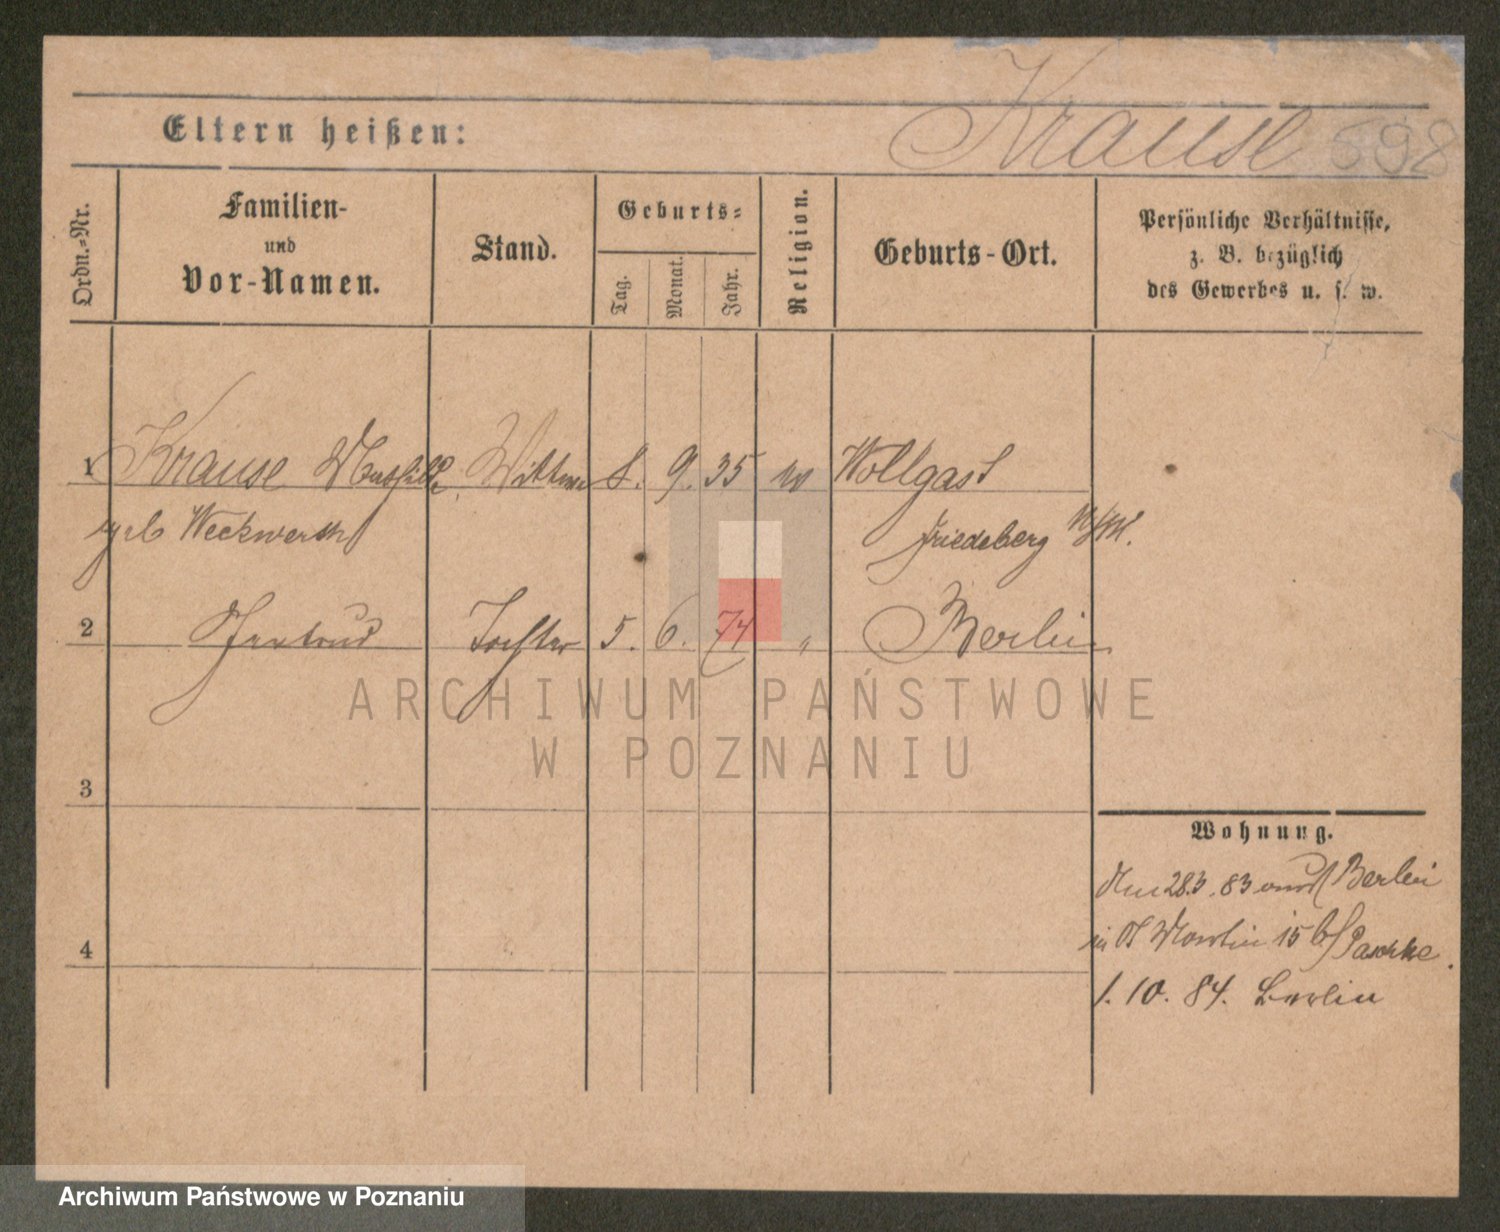 Eltern heißen:
Krause 598
Ordn.-Nr.
Familien-
und
Vor-Namen.
Stand.
Geburts-
Tag.
Monat.
Jahr.
Religion.
Geburts-Ort.
Persönliche Verhältnisse,
z. B. bezüglich
des Gewerbes u. s. w.
1 Krause Wittwe 8. 9. 35 Wollgast
geb Weckwerth Friedeberg N/M.
2 Gertrud Tochter 5. 6. 74 " Berlin
ARCHIWUM PAŃSTWOWE
W POZNANIU
3
Wohnung.
28.3.83 Berlin
in St Martin 15 b/ Paschke.
4
1. 10. 84. Berlin
Archiwum Państwowe w Poznaniu